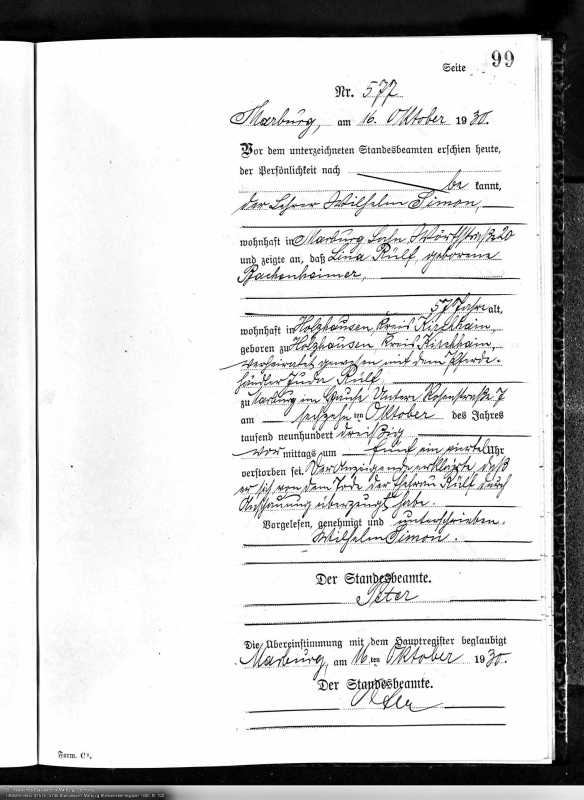 Seite 99
Nr. 577
Marburg, am 16. Oktober 1930.
Vor dem unterzeichneten Standesbeamten erschien heute,
der Persönlichkeit nach
be kannt,
der Lehrer Wilhelm Simon,
wohnhaft in Marburg Lahn, Wörthstraße 20
und zeigte an, daß Lina Rülf, geborene
Bachenheimer,
57 Jahre alt,
wohnhaft in Holzhausen, Kreis Kirchhain,
geboren zu Holzhausen Kreis Kirchhain,
verheiratet gewesen mit dem Pferde-
händler Juda Rülf
zu Marburg im Hause Untere Rosenstraße 7
am sechzehn ten Oktober des Jahres
tausend neunhundert dreißig
vor mittags um fünf ein viertel Uhr
verstorben sei. Der Anzeigende erklärte, daß
er sich von dem Tode der Ehefrau Rülf durch
Anschauung überzeugt habe.
Vorgelesen, genehmigt und unterschrieben.
Wilhelm Simon.
Der Standesbeamte.
Peter
Die Übereinstimmung mit dem Hauptregister beglaubigt
Marburg, am 16 ten Oktober 1930.
Der Standesbeamte.
Peter
Form. C².